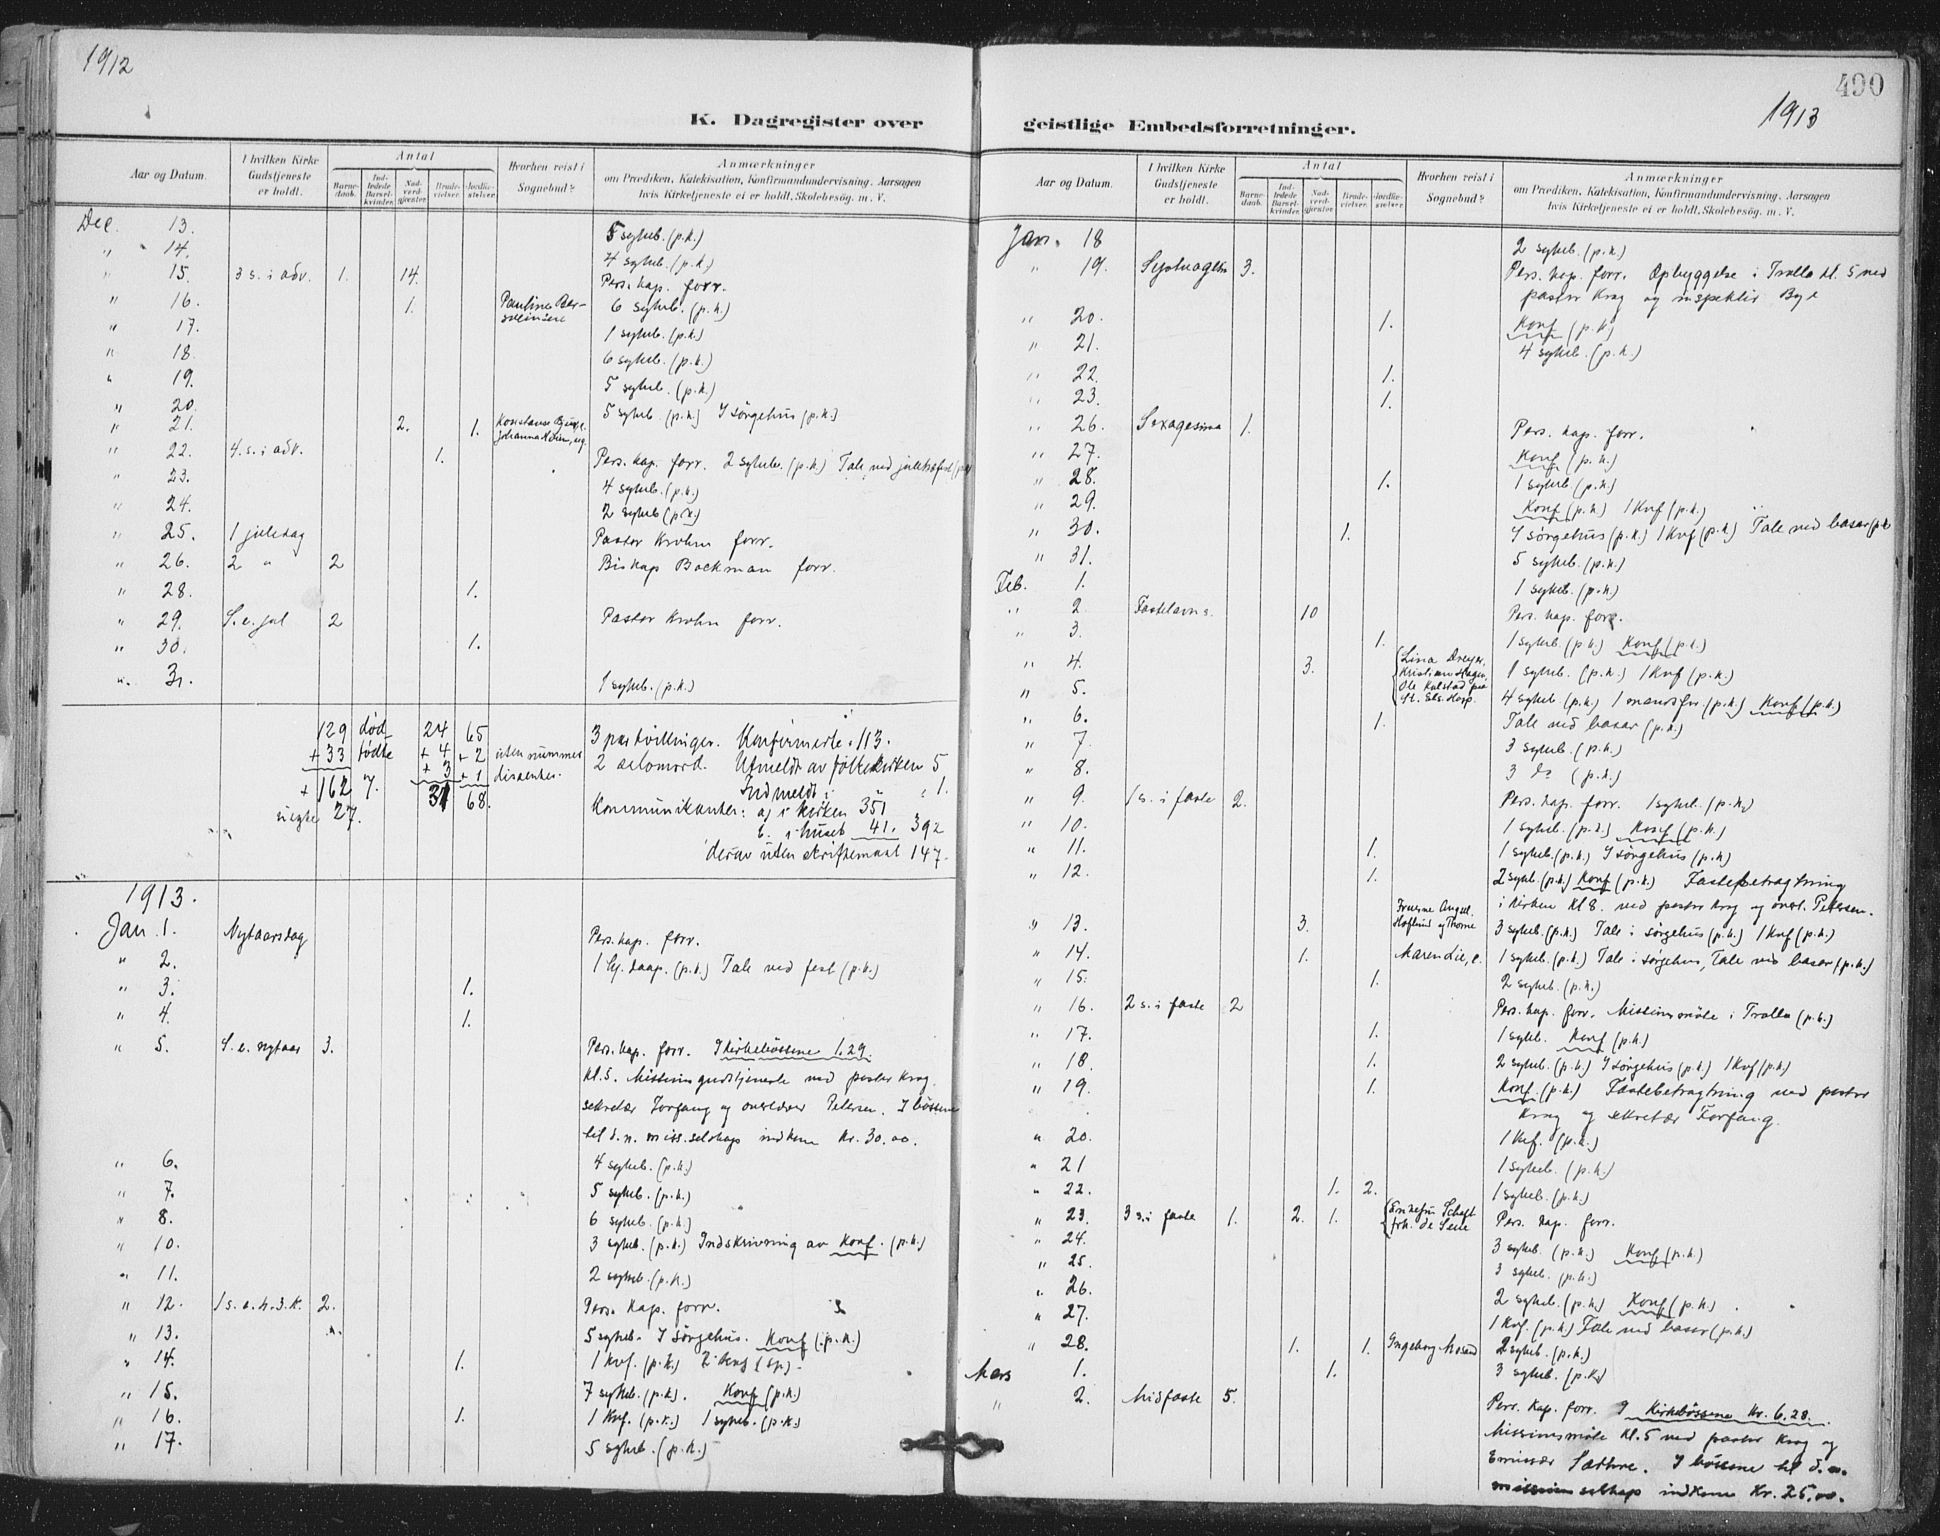 1912
K. Dagregister over
Aar og Datum. I hvilken Kirke Gudstjeneste er holdt. Antal Barnedaab. Indledede Barselkvinder. Nadverdgjester. Brudevielser. Jordfæstelser. Hvorhen reist i Sognebud? Anmærkninger
om Prædiken, Katekisation, Konfirmandundervisning, Aarsagen
hvis Kirketjeneste ei er holdt, Skolebesøg. m. V.
Dec. 13. 5 sykeb. (p.k.)
" 14. 4 sykeb. (p.k.)
" 15. 3 s. i adv. 1. 14. Pers. kap. forr.
" 16. 1. Pauline 6 sykeb. (p.k.)
" 17. 1 sykeb. (p.k.)
" 18. 6 sykeb. (p.k.)
" 19. 5 sykeb. (p.k.)
" 20. 5 sykeb. (p.k.) I sørgehus (p.k.)
" 21. 2. 1. Konstanse
" 22. 4. s. i adv. 1. Pers. kap. forr. 2 sykeb. (p.k.) Tale ved juletræfest (p.k.)
" 23. 4 sykeb. (p.k.)
" 24. 2 sykeb (p.k.)
" 25. 1 juledag Pastor Krohn forr.
" 26. 2 " 2 Biskop Bøckman forr.
" 28. 1.
" 29. S. e. jul 2 Pastor Krohn forr.
" 30. 1.
" 31. 1 sykeb. (p.k.)
129 død 24 65 3 par tvillinger. Konfirmerte: 113.
+ 33 fødte + 4 + 2 uten nummer 2 selvmord. Utmeldt av folkekirken 5
+ 3 + 1 dissenter. Indmeldt i " 1.
+ 162 7. 31 68. Kommunikanter: a) i kirken 351
uegte 27. b. i huset 41. 392
derav uten skriftemaal 147.
1913.
Jan. 1. Nytaarsdag Pers. kap. forr.
" 2. 1 hj. daap. (p.k.) Tale ved fest (p.k.)
" 3. 1.
" 4. 1.
" 5. S. e. nytaar 3. Pers. kap. forr. I kirkebøssene 1.29.
kl. 5. Missionsgudstjeneste ved pastor Krag,
sekretær Forfang og overlærer Petersen. I bøssene
til d. n. miss. selskap indkom kr. 30.00.
" 6. 4 sykeb. (p.k.)
" 7. 5 sykeb. (p.k.)
" 8. 6 sykeb. (p.k.)
" 10. 3 sykeb. (p.k.) Indskrivning av Konf. (p.k.)
" 11. 2 sykeb. (p.k.)
" 12. 1 s. e. h. 3. k. 2. Pers. kap. forr.
" 13. 5 sykeb. I sørgehus. Konf (p.k.)
" 14. 1. 1 kvf. (p.k.)
" 15. 7 sykeb. (p.k.). Konf (p.k.)
" 16. 1. 1 kvf. (p.k.) 1 sykeb. (p.k.)
" 17. 5 sykeb. (p.k.)
490
1913
geistlige Embedsforretninger.
Aar og Datum. I hvilken Kirke Gudstjeneste er holdt. Antal Barnedaab. Indledede Barselkvinder. Nadverdgjester. Brudevielser. Jordfæstelser. Hvorhen reist i Sognebud? Anmærkninger
om Prædiken, Katekisation, Konfirmandundervisning, Aarsagen
hvis Kirketjeneste ei er holdt, Skolebesøg. m. V.
Jan. 18 2 sykeb. (p.k.)
" 19. 3. Pers. kap. forr. Opbyggelse i Trolla kl. 5 ved
pastor Krag og inspektør Bye
" 20. 1. Konf (p.k)
" 21. 4 sykeb. (p.k.)
" 22. 1.
" 23. 1.
" 26. Sexagesima 1. Pers. kap. forr.
" 27. Konf (p.k.)
" 28. 1. 1 sykeb (p.k.)
" 29. Konf (p.k.) 1 Kvf (p.k.)
" 30. 1. I sørgehus (p.k.) 1 Kvf (p.k.) Tale ved basar (p.k.
" 31. 5 sykeb. (p.k.)
Feb. 1. 1 sykeb. (p.k.)
" 2. Fastelavns. 10 Pers. kap. forr.
" 3. 1. 1 sykeb (p.k.) Konf (p.k.)
" 4. 3. Lina Dreyer, Kristian Hagen, Ole Kulstad paa St. Els. Hosp. 1 sykeb. (p.k.) 1 Kvf (p.k.)
" 5. 4 sykeb (p.k.) 1 mandsfor. (p.k.) Konf (p.k.)
" 6. 1. Tale ved basar (p.k.)
" 7. 3 sykeb. (p.k.)
" 8. 3 do (p.k.)
" 9. 1 s. i faste 2. Pers. kap. forr. 1 sykeb. (p.k.)
" 10. 1 sykeb. (p.k.) Konf (p.k.)
" 11. 1. 1 sykeb. (p.k.) I sørgehus (p.k)
" 12. 1. 2 sykeb. (p.k.) Konf (p.k.) Fastebetragtning
i kirken kl 8. ved pastor Krag og overl. Petersen.
" 13. 3. Fruerne og Thorne 3 sykeb. (p.k.) Tale i sørgehus (p.k.) 1 Kvf (p.k.)
" 14. 1. Maren Lie, e. 1 sykeb. (p.k.) Tale i sørgehus, Tale ved basar (p.k.)
" 15. 1. 2 sykeb. (p.k.)
" 16. 2 s. i faste 2 Pers. kap. forr. Missionsmøte i Trolla (p.k.)
" 17. 1. 1 sykeb. Konf (p.k.)
" 18. 1. 2 sykeb. (p.k.) I sørgehus (p.k.) 1 Kvf (p.k)
" 19. 1. Konf. (p.k.) Fastebetragtning ved pastor
Krag og sekretær Forfang.
" 20. 1 Kvf. (p.k.)
" 21 1 sykeb. (p.k.)
" 22. 1. 2. 1 sykeb. (p.k.)
" 23. 3 s. i faste 1. 2. 1. frk. de Seue Pers. kap. forr.
" 24. 3 sykeb. (p.k.) Konf (p.k.)
" 25. 3 sykeb. (p.k.)
" 26. 2 sykeb. (p.k.) Konf (p.k.)
" 27. 1 Kvf. (p.k.) Tale ved basar (p.k.)
" 28. 1. 1. Ingeborg 2 sykeb. (p.k.)
Mars 1. 1. 3 sykeb. (p.k.)
" 2. Midfaste 5. Pers. kap. forr. I Kirkebøssene kr. 6.28.
Missionsmøte kl. 5 ved pastor Krag og
Emissær Sæthre. I bøssene til d. n.
missionsselskap indkom kr. 25,00.